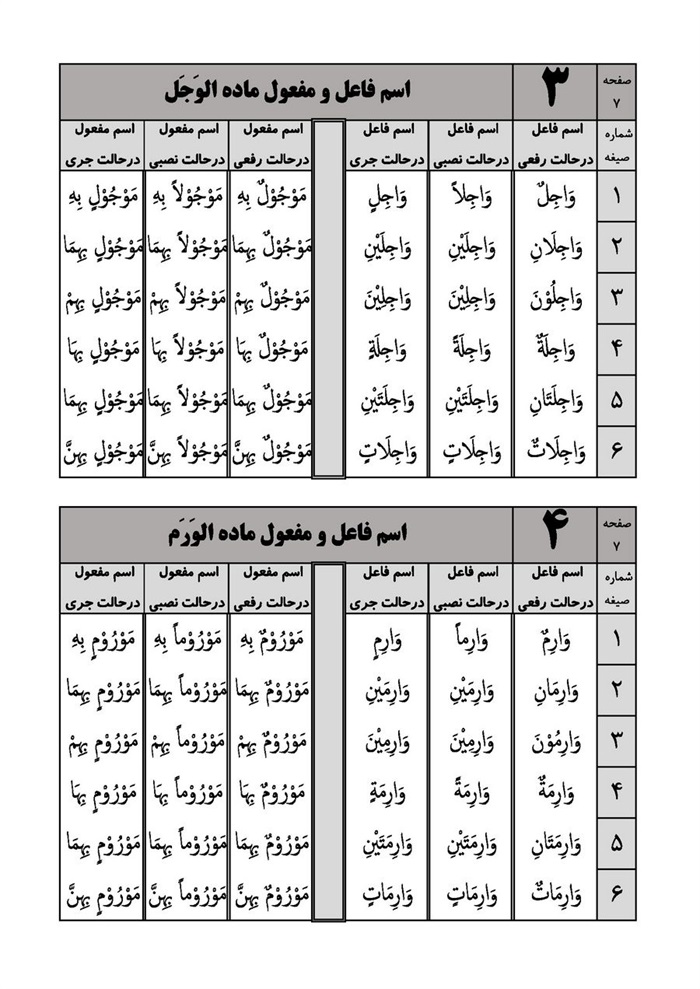 صفحه ۷ ۳ اسم فاعل و مفعول ماده الوَجَل
شماره صیغه اسم فاعل درحالت رفعی اسم فاعل درحالت نصبی اسم فاعل درحالت جری اسم مفعول درحالت رفعی اسم مفعول درحالت نصبی اسم مفعول درحالت جری
۱ وَاجِلٌ وَاجِلاً وَاجِلٍ مَوْجُوْلٌ بِهِ مَوْجُوْلاً بِهِ مَوْجُوْلٍ بِهِ
۲ وَاجِلَانِ وَاجِلَيْنِ وَاجِلَيْنِ مَوْجُوْلٌ بِهِمَا مَوْجُوْلاً بِهِمَا مَوْجُوْلٍ بِهِمَا
۳ وَاجِلُوْنَ وَاجِلِيْنَ وَاجِلِيْنَ مَوْجُوْلٌ بِهِمْ مَوْجُوْلاً بِهِمْ مَوْجُوْلٍ بِهِمْ
۴ وَاجِلَةٌ وَاجِلَةً وَاجِلَةٍ مَوْجُوْلٌ بِهَا مَوْجُوْلاً بِهَا مَوْجُوْلٍ بِهَا
۵ وَاجِلَتَانِ وَاجِلَتَيْنِ وَاجِلَتَيْنِ مَوْجُوْلٌ بِهِمَا مَوْجُوْلاً بِهِمَا مَوْجُوْلٍ بِهِمَا
۶ وَاجِلَاتٌ وَاجِلَاتٍ وَاجِلَاتٍ مَوْجُوْلٌ بِهِنَّ مَوْجُوْلاً بِهِنَّ مَوْجُوْلٍ بِهِنَّ
صفحه ۷ ۴ اسم فاعل و مفعول ماده الوَرَم
شماره صیغه اسم فاعل درحالت رفعی اسم فاعل درحالت نصبی اسم فاعل درحالت جری اسم مفعول درحالت رفعی اسم مفعول درحالت نصبی اسم مفعول درحالت جری
۱ وَارِمٌ وَارِماً وَارِمٍ مَوْرُوْمٌ بِهِ مَوْرُوْماً بِهِ مَوْرُوْمٍ بِهِ
۲ وَارِمَانِ وَارِمَيْنِ وَارِمَيْنِ مَوْرُوْمٌ بِهِمَا مَوْرُوْماً بِهِمَا مَوْرُوْمٍ بِهِمَا
۳ وَارِمُوْنَ وَارِمِيْنَ وَارِمِيْنَ مَوْرُوْمٌ بِهِمْ مَوْرُوْماً بِهِمْ مَوْرُوْمٍ بِهِمْ
۴ وَارِمَةٌ وَارِمَةً وَارِمَةٍ مَوْرُوْمٌ بِهَا مَوْرُوْماً بِهَا مَوْرُوْمٍ بِهَا
۵ وَارِمَتَانِ وَارِمَتَيْنِ وَارِمَتَيْنِ مَوْرُوْمٌ بِهِمَا مَوْرُوْماً بِهِمَا مَوْرُوْمٍ بِهِمَا
۶ وَارِمَاتٌ وَارِمَاتٍ وَارِمَاتٍ مَوْرُوْمٌ بِهِنَّ مَوْرُوْماً بِهِنَّ مَوْرُوْمٍ بِهِنَّ